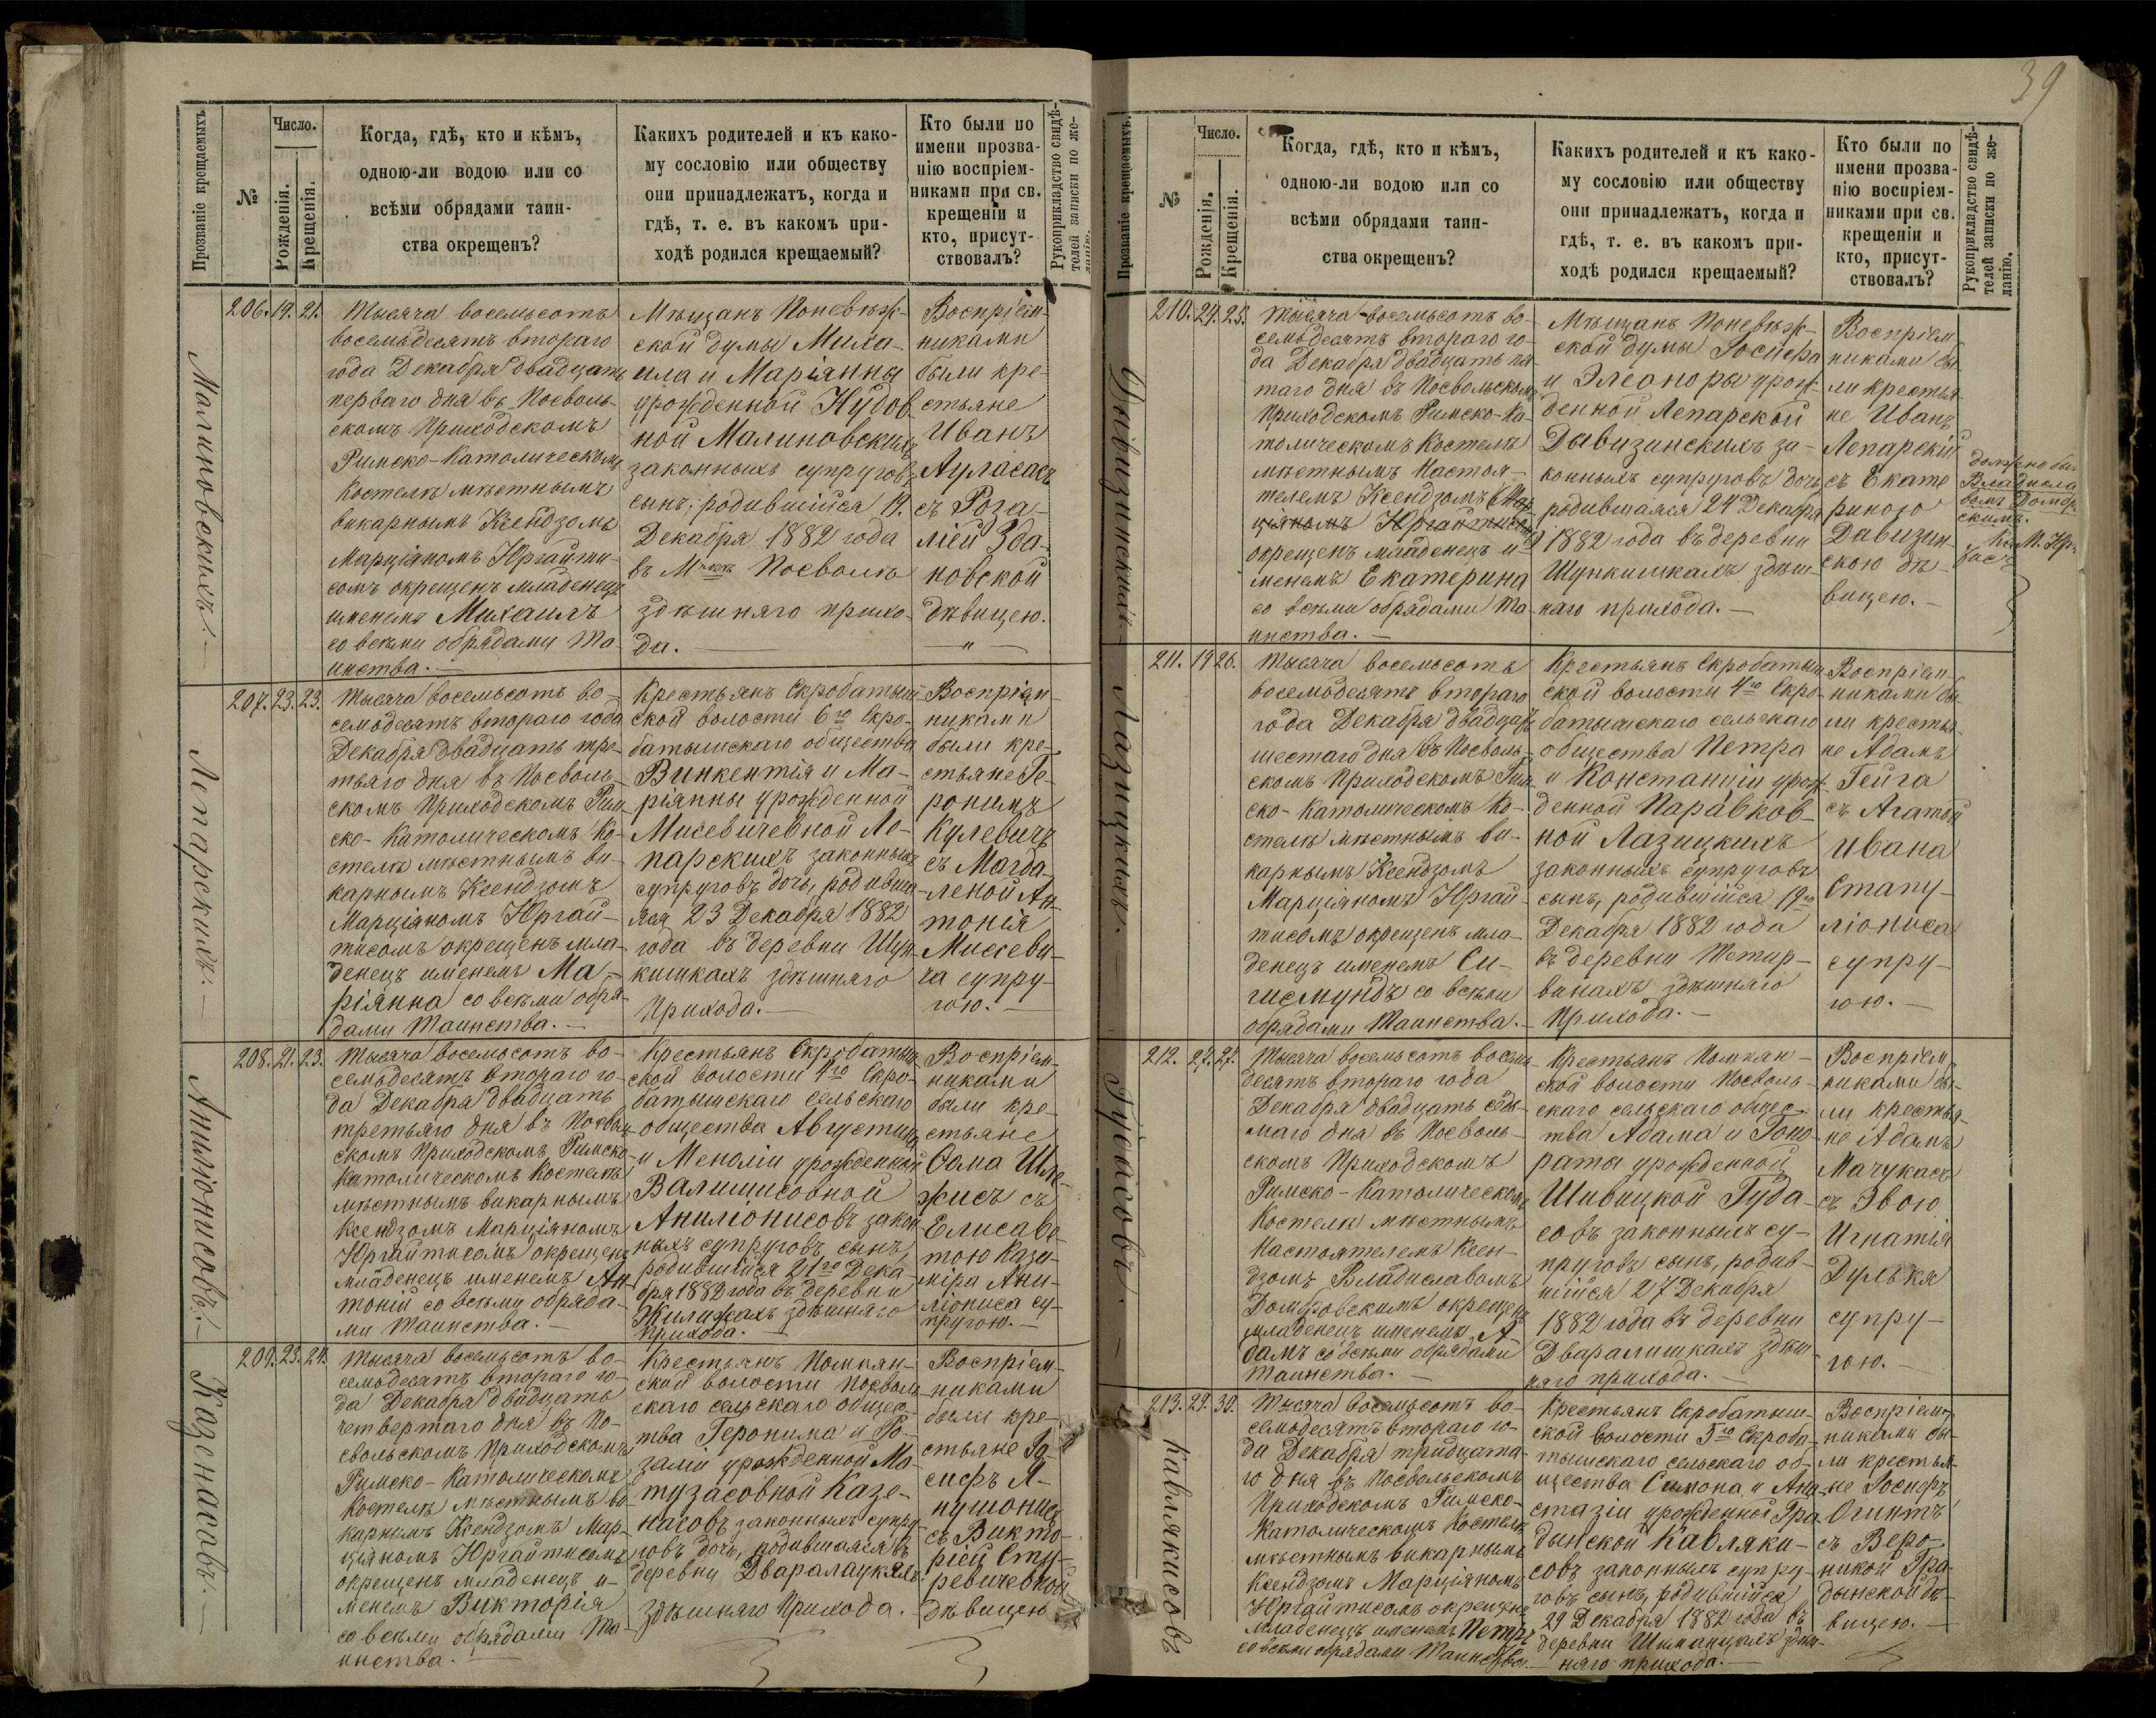 39
Прозваніе крещаемыхъ
№
Число.
Рожденія.
Крещенія.
Когда, гдѣ, кто и кѣмъ,
одною-ли водою или со
всѣми обрядами таин-
ства окрещенъ?
Какихъ родителей и къ како-
му сословію или обществу
они принадлежатъ, когда и
гдѣ, т. е. въ какомъ при-
ходѣ родился крещаемый?
Кто были по
имени прозва-
нію воспріем-
никами при св.
крещеніи и
кто, присут-
ствовалъ?
Рукоприкладство свидѣ-
телей записки по же-
ланію.
Малиновскихъ. —
206. 19. 21.
Тысяча восемьсотъ
восемьдесятъ втораго
года Декабря двадцать
перваго дня въ Посволь-
скомъ Приходскомъ
Римско-Католическомъ
Костелѣ мѣстнымъ
викарнымъ Ксендзомъ
Марціяномъ Юргайти-
сомъ окрещенъ младенецъ
именемъ Михаилъ
со всѣми обрядами Та-
инства. —
Мѣщанъ Поневѣж-
ской думы Миха-
ила и Маріанны
урожденной Нудов
ной Малиновскихъ
законныхъ супруговъ
сынъ, родившійся 19.
Декабря 1882 года
въ Посволѣ
здѣшняго прихо-
да. —
Воспріем-
никами
были кре-
стьяне
Иванъ
Ауласасъ
съ Роза-
ліей Зда-
новской
дѣвицею.
— " —
Лепарскихъ. —
207. 23. 23.
Тысяча восемьсотъ во-
семьдесятъ втораго года
Декабря двадцать тре-
тьяго дня въ Посволь-
скомъ Приходскомъ Рим
ско-Католическомъ Ко-
стелѣ мѣстнымъ ви-
карнымъ Ксендзомъ
Марціяномъ Юргай-
тисомъ окрещенъ мла-
денецъ именемъ Ма-
ріянна со всѣми обря-
дами Таинства. —
Крестьянъ Скробатыш
ской волости 6го Скро-
батышскаго общества
Винкентія и Ма-
ріянны урожденной
Мисевичевной Ле-
парскихъ законныхъ
супруговъ дочь, родивша-
яся 23 Декабря 1882
года въ деревни Шун-
кишкахъ здѣшняго
Прихода. —
Воспріем-
никами
были кре-
стьяне Ге-
ронимъ
Кулевичъ
съ Магда
леной Ан-
тонія
Миссеви-
ча супру-
гою. —
Анилiонисовъ. —
208. 21. 23.
Тысяча восемьсотъ во-
семьдесятъ втораго го-
да Декабря двадцать
третьяго дня въ Посволь
скомъ Приходскомъ Римско-
Католическомъ Костелѣ
мѣстнымъ викарнымъ
Ксендзомъ Марціяномъ
Юргайтисомъ окрещенъ
младенецъ именемъ Ан
тоній со всѣми обряда-
ми Таинства. —
Крестьянъ Скробатыш
ской волости 4го Скро-
батышскаго сельскаго
общества Августина
и Меналіи урожденной
Валишисовной
Анилiонисовъ закон
ныхъ супруговъ сынъ,
родившійся 21го Дека
бря 1882 года въ деревни
Жилижахъ здѣшняго
прихода. —
Воспріем-
никами
были кре-
стьяне
Ѳома
съ
Елисаве-
тою Кази-
міра Ани-
ліониса су-
пругою. —
Казенасовъ. —
209. 23. 24.
Тысяча восемьсотъ во-
семьдесятъ втораго го-
да Декабря двадцать
четвертаго дня въ По-
свольскомъ Приходскомъ
Римско-Католическомъ
Костелѣ мѣстнымъ ви-
карнымъ Ксендзомъ Мар-
ціяномъ Юргайтисомъ
окрещенъ младенецъ и-
менемъ Викторія
со всѣми обрядами Та-
инства. —
Крестьянъ Помпян-
ской волости Посволь
скаго сельскаго общес-
тва Геронима и Ро-
заліи урожденной Ма-
тузасовной Казе-
насовъ законныхъ супру-
говъ дочь, родившаяся въ
деревни Дваралаукяхъ
здѣшняго Прихода.
Воспріем-
никами
были кре-
стьяне Іо-
сифъ Я-
нушонисъ
съ Викто-
ріей Сту-
ревичевной
дѣвицею
Прозваніе крещаемыхъ.
№
Число.
Рожденія.
Крещенія.
Когда, гдѣ, кто и кѣмъ,
одною-ли водою или со
всѣми обрядами таин-
ства окрещенъ?
Какихъ родителей и къ како-
му сословію или обществу
они принадлежатъ, когда и
гдѣ, т. е. въ какомъ при-
ходѣ родился крещаемый?
Кто были по
имени прозва-
нію воспріем-
никами при св.
крещеніи и
кто, присут-
ствовалъ?
Рукоприкладство свидѣ-
телей записки по же-
ланію.
Довизинскихъ. —
210. 24. 25.
Тысяча восемьсотъ во-
семьдесятъ втораго го-
да Декабря двадцать пя-
таго дня въ Посвольскомъ
Приходскомъ Римско-Ка-
толическомъ Костелѣ
мѣстнымъ Настоя-
телемъ Ксендзомъ Мар
ціяномъ Юргайтисомъ
окрещенъ младенецъ и-
менемъ Екатерина
со всѣми обрядами Та-
инства. —
Мѣщанъ Поневѣж-
ской думы Іосифа
и Элеоноры урож-
денной Лепарской
Давизинскихъ за-
конныхъ супруговъ дочь
родившаяся 24 Декабря
1882 года въ деревни
Шункишкахъ здѣш-
няго прихода. —
Воспріем
никами бы-
ли крестья-
не Иванъ
Лепарскій
съ Екате
риною
Давизин-
скою дѣ-
вицею. —
должно быть
Владисла
вомъ Домбр
скимъ.
Лазицкихъ. —
211. 19 26.
Тысяча восемьсотъ
восемьдесятъ втораго
года Декабря двадцать
шестаго дня въ Посволь-
скомъ Приходскомъ Рим
ско-Католическомъ Ко-
стелѣ мѣстнымъ ви-
карнымъ Ксендзомъ
Марціяномъ Юргай-
тисомъ окрещенъ мла-
денецъ именемъ Си-
гисмундъ со всѣми
обрядами Таинства. —
Крестьянъ Скробатыш
ской волости 4го Скро-
батышскаго сельскаго
общества Петра
и Констанціи урож-
денной Паравков-
ной Лазицкихъ
законныхъ супруговъ
сынъ, родившійся 19го
Декабря 1882 года
въ деревни Тетир-
винахъ здѣшняго
Прихода. —
Воспріем-
никами бы-
ли крестья-
не Адамъ
Гейга
съ Агатой
Ивана
Стапу-
ліониса
супру-
гою. —
Гудасовъ. —
212. 27. 27.
Тысяча восемьсотъ восемь
десятъ втораго года
Декабря двадцать седь-
маго дня въ Посволь-
скомъ Приходскомъ
Римско-Католическомъ
Костелѣ мѣстнымъ
Настоятелемъ Ксен-
дзомъ Владиславомъ
Домбровскимъ окрещенъ
младенецъ именемъ А-
дамъ со всѣми обрядами
Таинства. —
Крестьянъ Помпян-
ской волости Посволь-
скаго сельскаго общес-
тва Адама и Гоно-
раты урожденной
Шивицкой Гуда-
совъ законныхъ су-
пруговъ сынъ, родив-
шійся 27 Декабря
1882 года въ деревни
Дваралишкахъ здѣш
няго прихода. —
Воспріем-
никами бы-
ли крестья-
не Адамъ
Мачукасъ
съ Эвою
Игнатія
Дулькя
супру-
гою. —
Кавлякисовъ
213. 29. 30.
Тысяча восемьсотъ во-
семьдесятъ втораго го-
да Декабря тридцата-
го дня въ Посвольскомъ
Приходскомъ Римско-
Католическомъ Костелѣ
мѣстнымъ викарнымъ
Ксендзомъ Марціяномъ
Юргайтисомъ окрещенъ
младенецъ именемъ Петръ
со всѣми обрядами Таинства. —
Крестьянъ Скробатыш-
ской волости 5го Скроба-
тышскаго сельскаго об-
щества Симона и Ана-
стазіи урожденной Гра
дынской Кавляки-
совъ законныхъ супру-
говъ сынъ, родившійся
29 Декабря 1882 года въ
деревни Шиманцахъ здѣш-
няго прихода. —
Воспріем-
никами бы-
ли крестья-
не Іосифъ
Огинтъ
съ Веро-
никой Гра-
дынской дѣ-
вицею. —